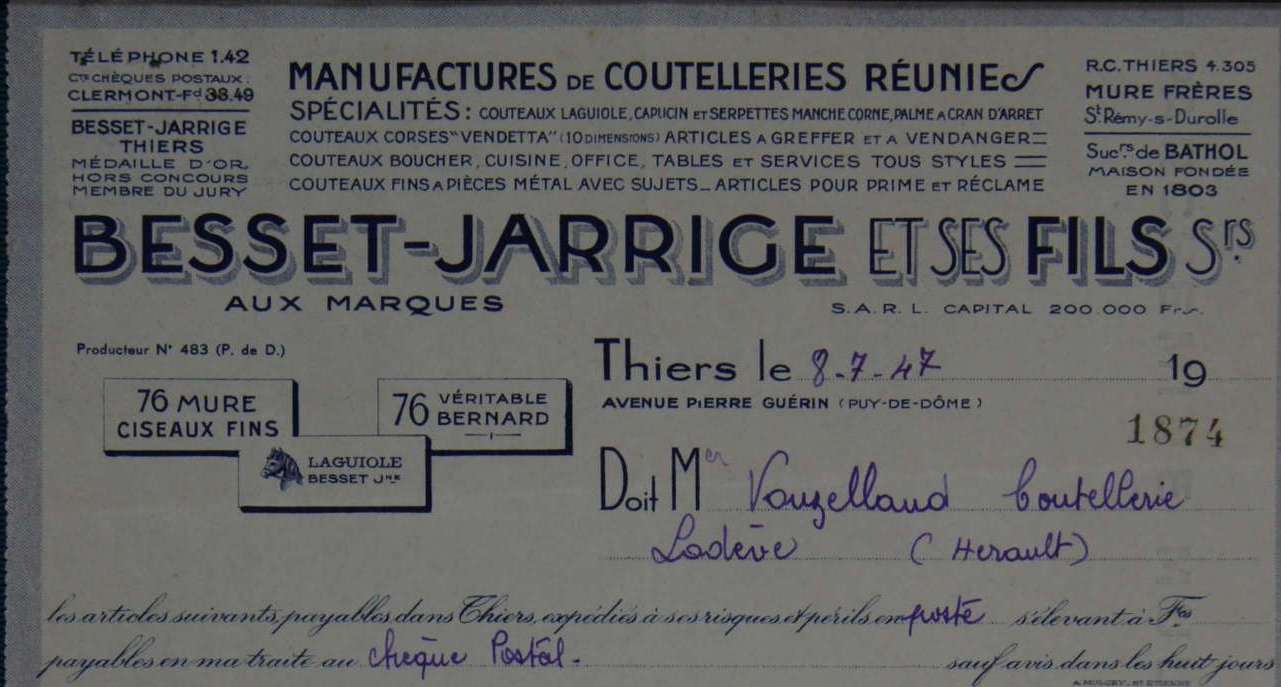 TÉLÉPHONE 1.42
CTE CHÈQUES POSTAUX:
CLERMONT-Fd 38.49
BESSET-JARRIGE
THIERS
MÉDAILLE D'OR,
HORS CONCOURS
MEMBRE DU JURY
MANUFACTURES DE COUTELLERIES RÉUNIES
SPÉCIALITÉS: COUTEAUX LAGUIOLE, CAPUCIN ET SERPETTES MANCHE CORNE, PALME A CRAN D'ARRET
COUTEAUX CORSES "VENDETTA" (10 DIMENSIONS) ARTICLES A GREFFER ET A VENDANGER
COUTEAUX BOUCHER, CUISINE, OFFICE, TABLES ET SERVICES TOUS STYLES
COUTEAUX FINS A PIÈCES MÉTAL AVEC SUJETS_ ARTICLES POUR PRIME ET RÉCLAME
R.C. THIERS 4.305
MURE FRÈRES
St Rémy-s-Durolle
Sucrs de BATHOL
MAISON FONDÉE
EN 1803
BESSET-JARRIGE ET SES FILS Srs
AUX MARQUES
S.A.R.L. CAPITAL 200.000 Frs.
Producteur N° 483 (P. de D.)
76 MURE
CISEAUX FINS
76 VÉRITABLE
BERNARD
LAGUIOLE
BESSET JNE
Thiers le 8-7-47 19
AVENUE PIERRE GUÉRIN (PUY-DE-DÔME)
1874
Doit Mer Vouzelland Coutellerie
Lodève (Herault)
les articles suivants, payables dans Thiers, expédiés à ses risques et périls en poste s'élevant à Fcs
payables en ma traite au chèque Postal. sauf avis dans les huit jours